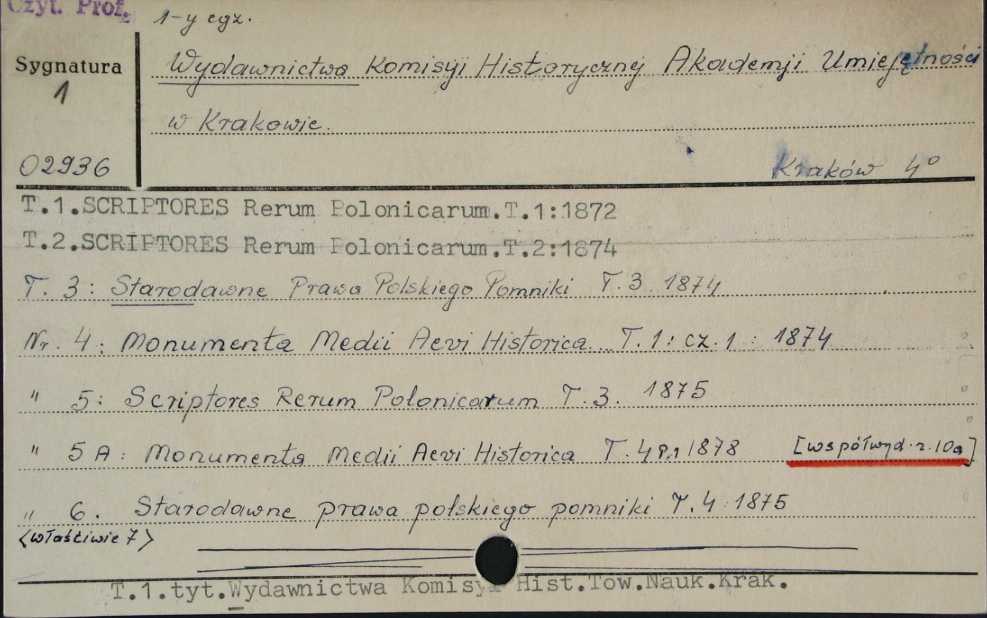 Czyt. Prof.
1-y egz.
Sygnatura
1
Wydawnictwa Komisyi Historycznej Akademji Umiejętności
w Krakowie.
02936
Kraków 4°
T.1.SCRIPTORES Rerum Polonicarum.T.1:1872
T.2.SCRIPTORES Rerum Polonicarum.T.2:1874
T. 3: Starodawne Prawa Polskiego Pomniki T. 3 1874
Nr. 4: Monumenta Medii Aevi Historica T.1: cz.1: 1874
" 5: Scriptores Rerum Polonicarum T.3. 1875
" 5A: Monumenta Medii Aevi Historica T. 4 1878 [współwyd. z. 10a]
" 6. Starodawne prawa polskiego pomniki T.4 1875
<właściwie 7>
T.1.tyt.Wydawnictwa Komisyi Hist.Tow.Nauk.Krak.